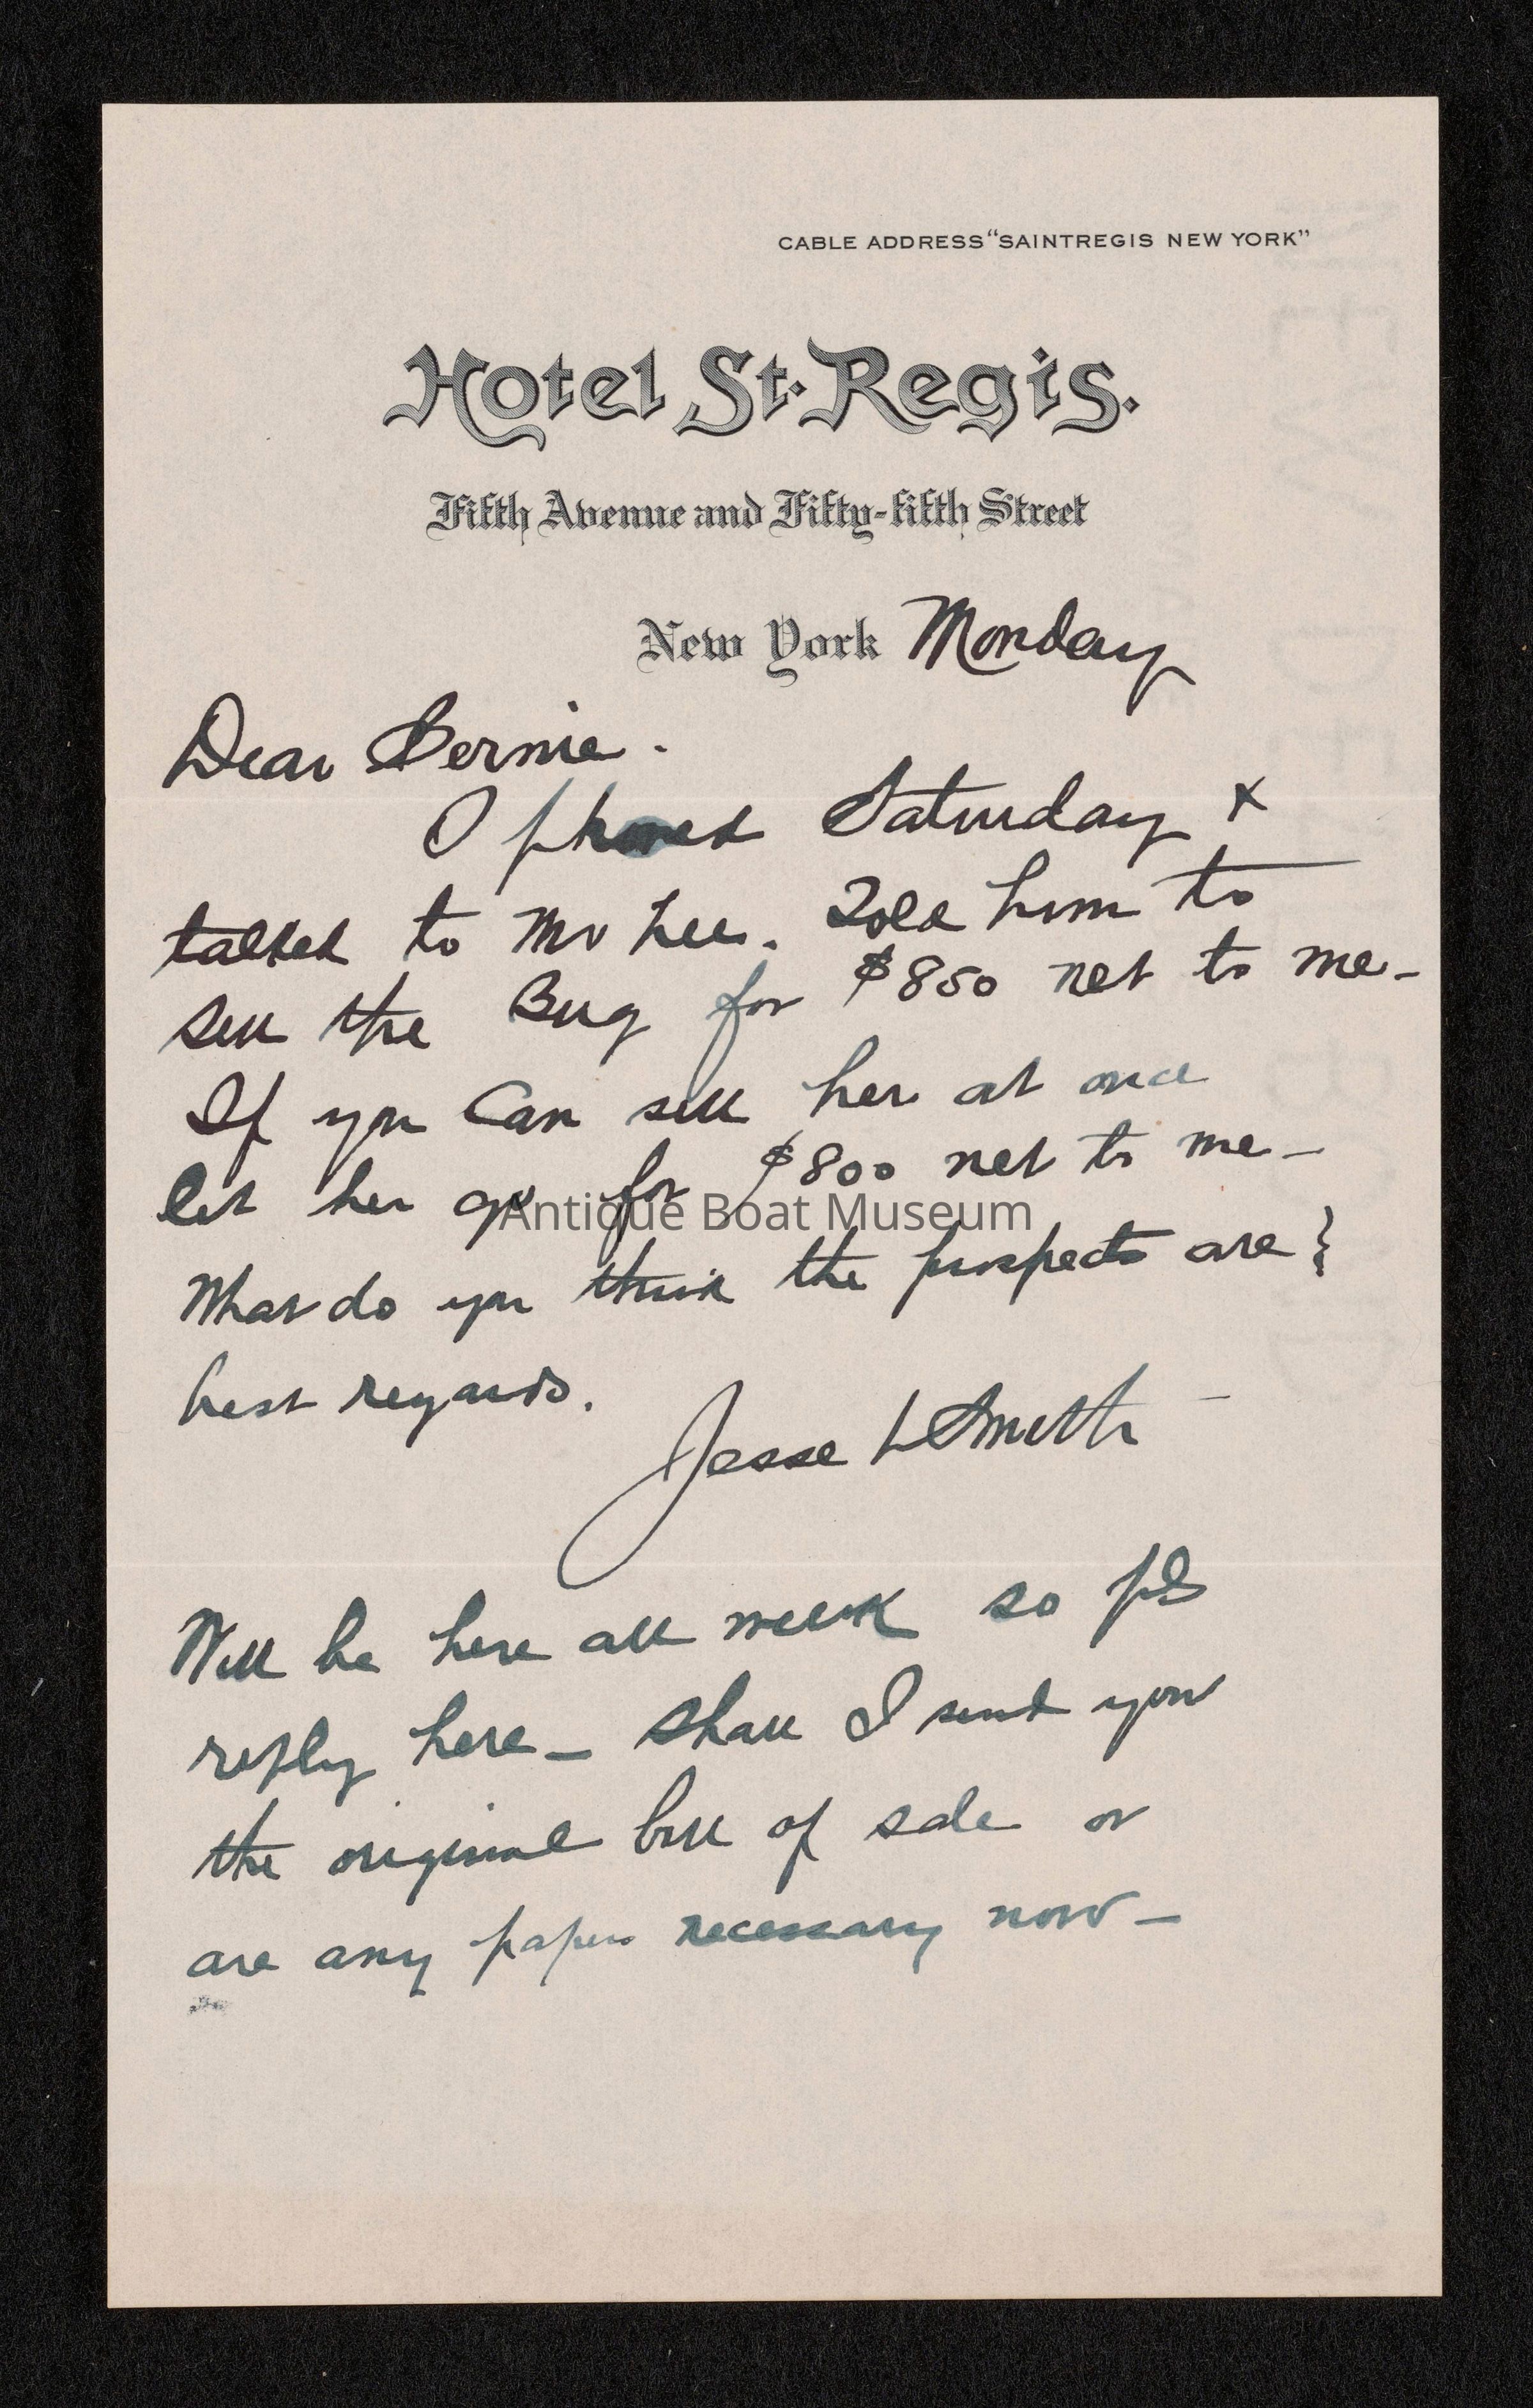 CABLE ADDRESS "SAINTREGIS NEW YORK"
Hotel St. Regis.
Fifth Avenue and Fifty-fifth Street
New York Monday
Dear Bernie.
I phoned Saturday &
talked to Mr Lee. Told him to
sell the Bug for $850 net to me -
If you can sell her at once
let her go for $800 net to me -
Antique Boat Museum
What do you think the prospects are?
best regards.
Jesse L Smith -
Will be here all week so pls
reply here - Shall I send you
the original bill of sale or
are any papers necessary now -